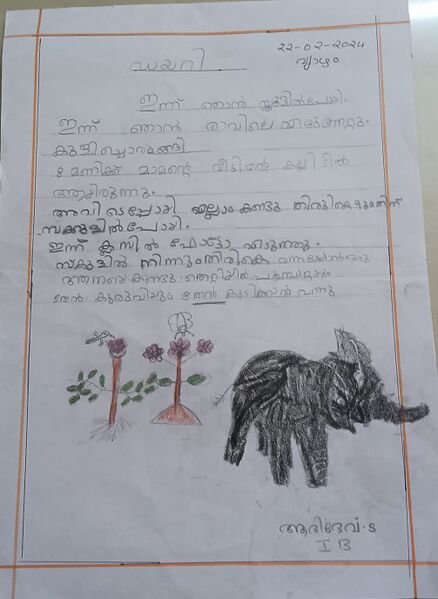 22-02-2024
വ്യാഴം
ഡയറി
ഇന്ന് ഞാൻ സ്കൂളിൽ പോയി.
ഇന്ന് ഞാൻ രാവിലെ എഴുന്നേറ്റു.
കുളിച്ചൊരുങ്ങി
8 മണിക്ക് മാമന്റെ വീടിന്റെ കല്ലിടീൽ
ആയിരുന്നു.
അവിടെപ്പോയി എല്ലാം കണ്ടു തിരികെ
സ്കൂളിൽ പോയി.
ഇന്ന് ക്ലസിൽ ഫോട്ടോ എടുത്തു.
സ്കൂളിൽ നിന്നും തിരികെ
ആനയെ കണ്ടു. തെറ്റിയിൽ
തേൻ കുരുവിയും തേൻ കുടിക്കാൻ വന്നു
ആദിദേവ്. S
I B